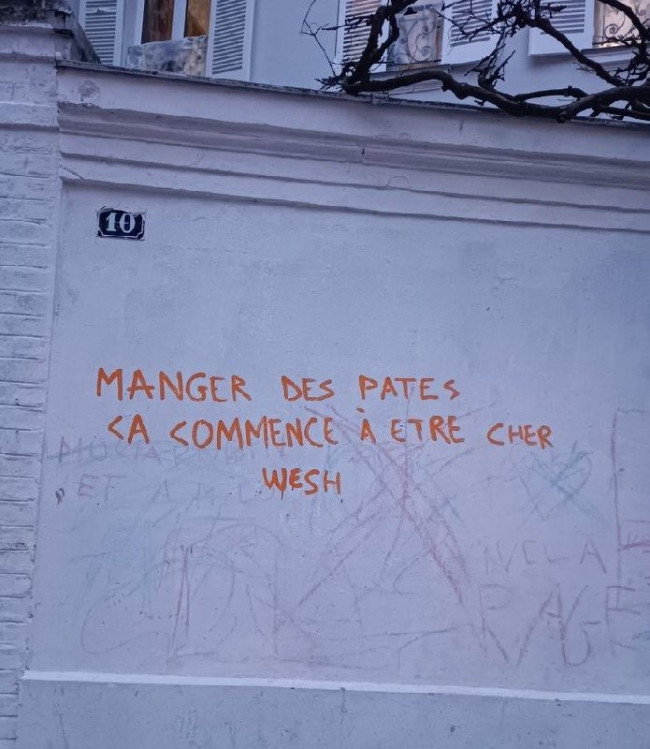 10
MANGER DES PATES
CA COMMENCE À ETRE CHER
WESH